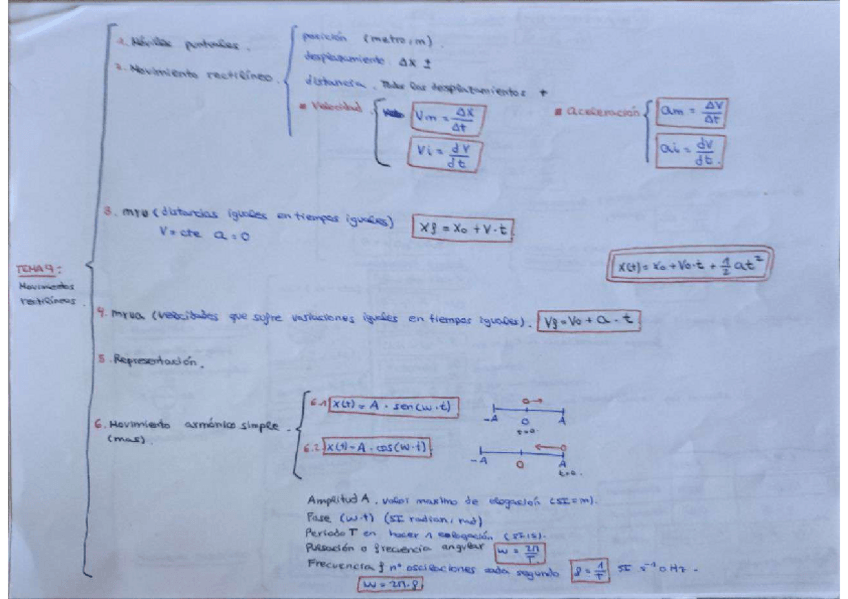 TEMA 9:
Movimientos
rectilíneos.
1. Móviles puntuales.
2. Movimiento rectilíneo.
posición (metro, m).
desplazamiento Δx ±
distancia. Todos los desplazamientos +
▪ Velocidad
Vm = Δx/Δt
Vi = dV/dt
▪ aceleración
am = ΔV/Δt
ai = dV/dt.
3. mru (distancias iguales en tiempos iguales)
V = cte a = 0
Xf = X0 + V·t
X(t) = X0 + V0·t + 1/2 at²
4. mrua (velocidades que sufre variaciones iguales en tiempos iguales).
Vf = V0 + a · t
5. Representación.
6. Movimiento armónico simple
(mas).
6.1 X(t) = A · sen(w·t)
-A O A
t=0.
6.2. X(t) = A · cos(w·t)
-A O A
t=0.
Amplitud A. valor maximo de elogación (SI=m).
Fase (w·t) (SI radian; rad)
Periodo T en hacer 1 (SI; s).
Pulsación o frecuencia angular w = 2π/T
Frecuencia f nº oscilaciones cada segundo f = 1/T SI s⁻¹ o Hz.
w = 2π·f